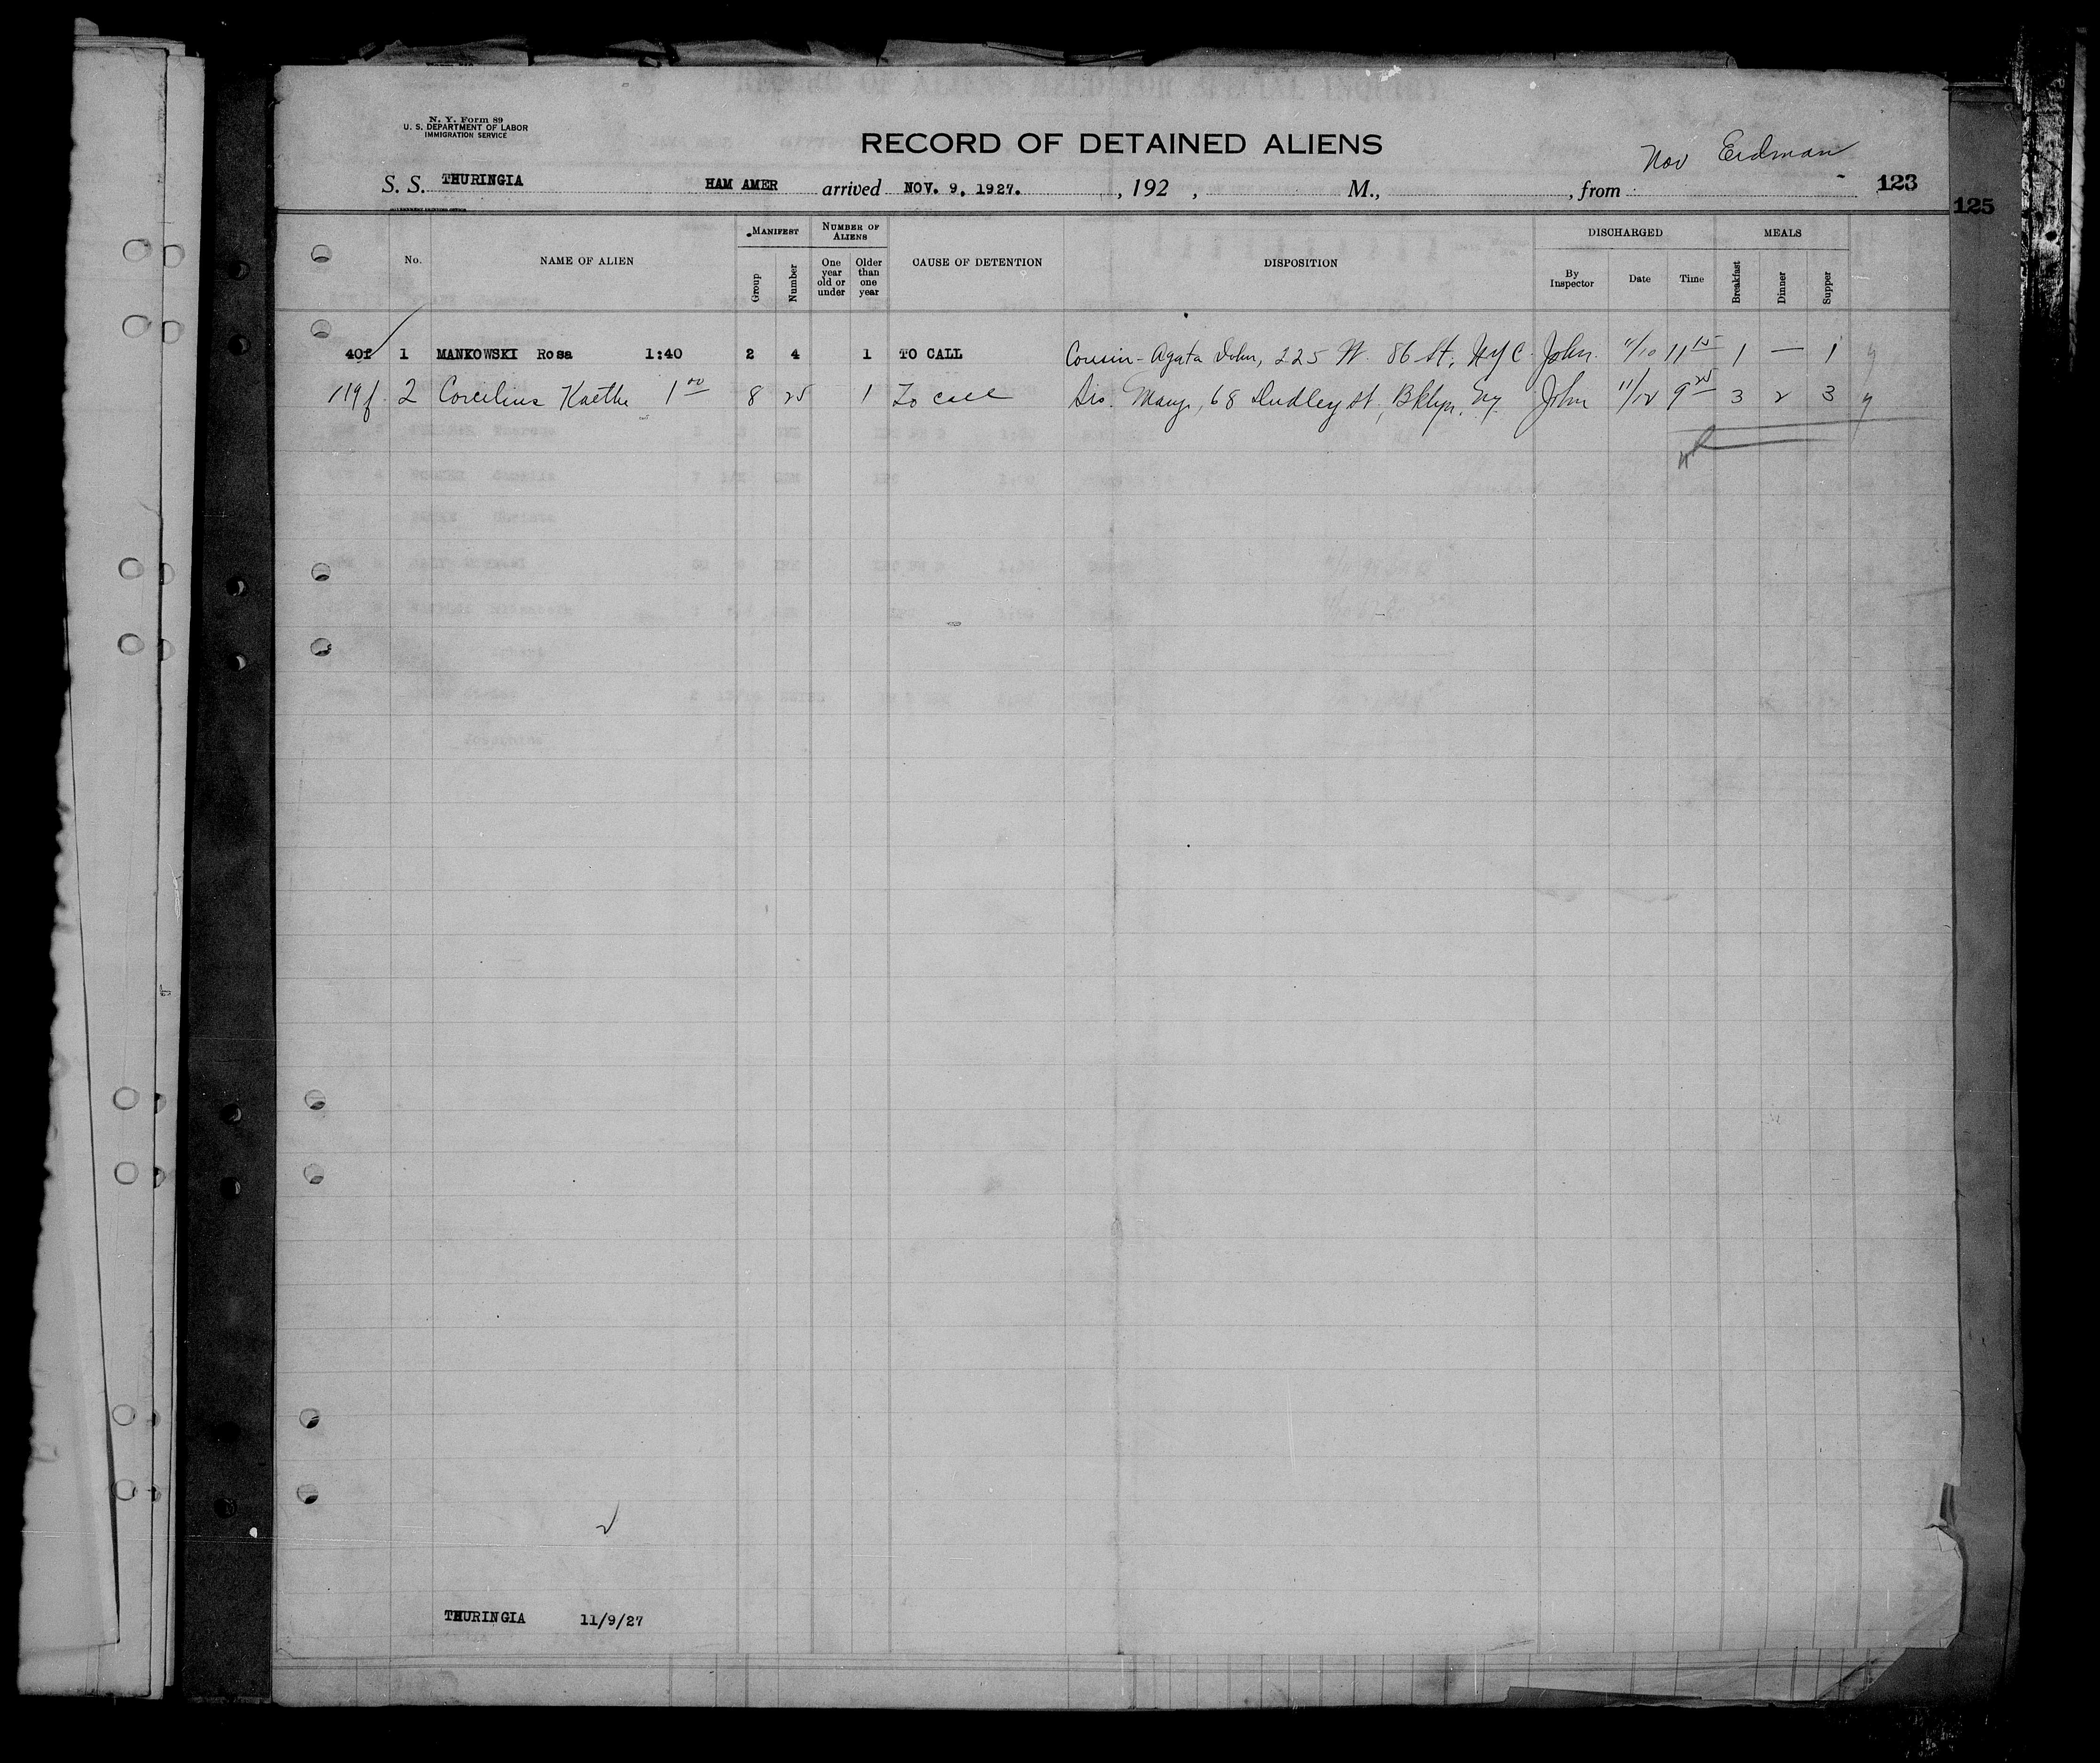 N. Y. Form 89
U. S. DEPARTMENT OF LABOR
IMMIGRATION SERVICE
RECORD OF DETAINED ALIENS
Nov Erdman
S. S. THURINGIA HAM AMER arrived NOV. 9, 1927. , 192 , M., , from 123
125
GOVERNMENT PRINTING OFFICE
No. NAME OF ALIEN MANIFEST Group Number NUMBER OF ALIENS One year old or under Older than one year CAUSE OF DETENTION DISPOSITION DISCHARGED By Inspector Date Time MEALS Breakfast Dinner Supper
40f 1 MANKOWSKI Rosa 1:40 2 4 1 TO CALL Cousin - Agata John, 225 W. 86 St, NYC John. 11/10 11 15 1 — 1 y
119f 2 Corcilius Kaethe 1 00 8 25 1 To call Sis. Mary, 68 Dudley St, Bklyn, Ny. John 11/12 9 25 3 2 3 y
THURINGIA 11/9/27